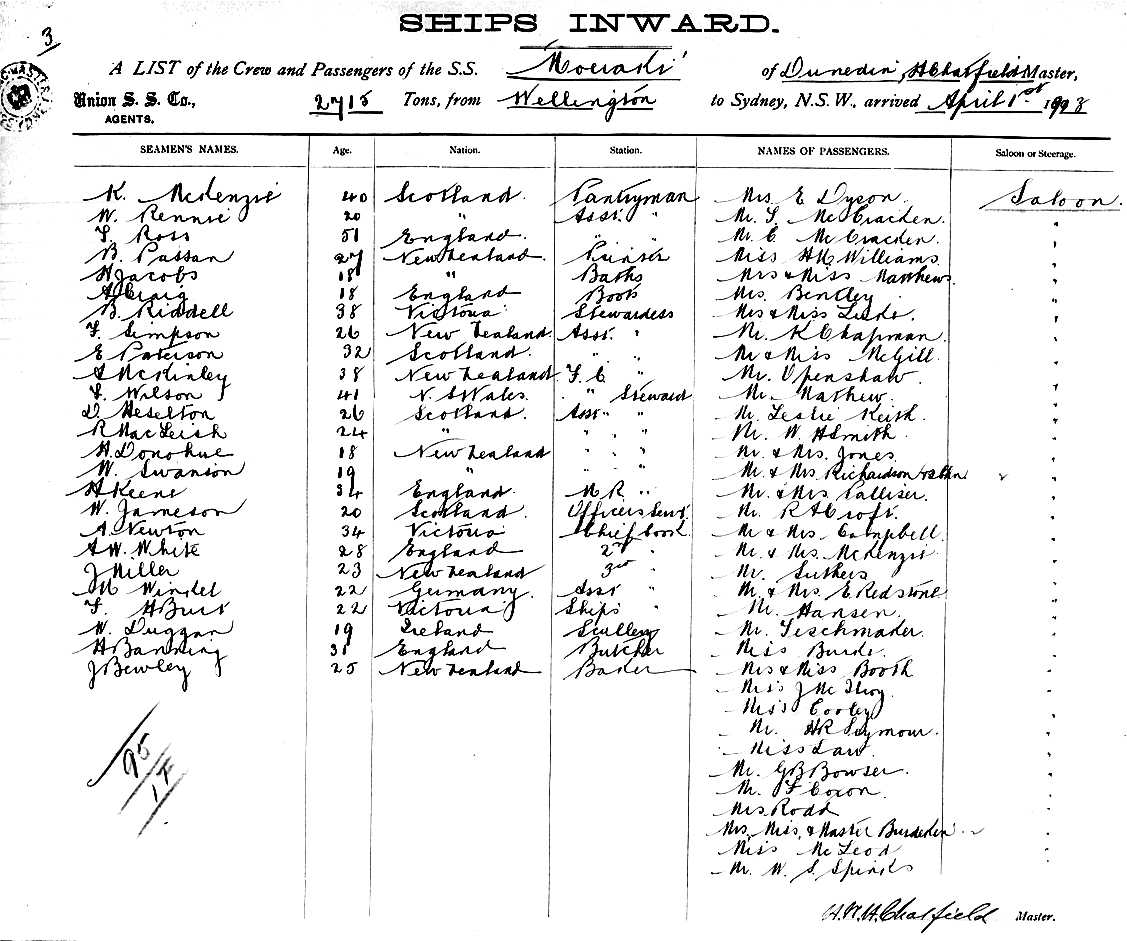 3
SHIPS INWARD.
A LIST of the Crew and Passengers of the S.S. Moeraki of Dunedin, H Chatfield Master,
Union S. S. Co., 2715 Tons, from Wellington to Sydney, N.S.W., arrived April 1st 1908
AGENTS.
SEAMEN'S NAMES. Age. Nation. Station. NAMES OF PASSENGERS. Saloon or Steerage.
K. McKenzie 40 Scotland Pantryman Mrs E Dyson Saloon
W. Rennie 20 " Asst. " Mr. S. McCracken "
F. Ross 51 England " " Mr. C. McCracken "
B. Passan 27 New Zealand Printer Miss HM Williams "
H Jacobs 18 " Baths Mrs & Miss Matthews "
A Craig 18 England Boots Mrs. Bentley "
B. Riddell 38 Victoria Stewardess Mrs & Miss "
F. Simpson 26 New Zealand Asst. " Mr. K Chapman "
E Paterson 32 Scotland " " Mr & Miss McGill "
A McKinley 38 New Zealand F. C " Mr. Openshaw "
F. Wilson 41 N. S Wales " Steward Mr. Mathew "
D. Heselton 26 Scotland Asst " " Mr. Leslie Keith "
R MacLeish 24 " " " " Mr. W. H Smith "
H. Donohue 18 New Zealand " " " Mr. & Mrs. Jones "
W. Swanson 19 " " " " Mr. & Mrs. Richardson "
H Keene 34 England M R " Mr. & Mrs. Palliser "
W. Jameson 20 Scotland Officers Servt. Mr. R A Croft "
A. Newton 34 Victoria Chief Cook Mr & Mrs. Campbell "
A W. White 28 England 2nd " Mr. & Mrs. McKenzie "
J Miller 23 New Zealand 3rd " Mr. Suthers "
M Windel 22 Germany Asst " Mr. & Mrs. E. Redstone "
F. H Burt 22 Victoria Ships " Mr. Hansen "
W. Duggan 19 Ireland Scullery Mr. Teschmaker "
H Banning 31 England Butcher Miss "
J Bewley 25 New Zealand Baker Mrs & Miss Booth "
Miss J McIlroy "
Miss Cooley "
Mr. HR Seymour "
Miss Law "
Mr. GB Bowser "
Mr. F Coxon "
Mrs Rodd "
Mrs, Miss, & Master Burdekin "
Miss McLeod "
Mr. W. S. Spinks "
95/14
H. W. H. Chatfield Master.